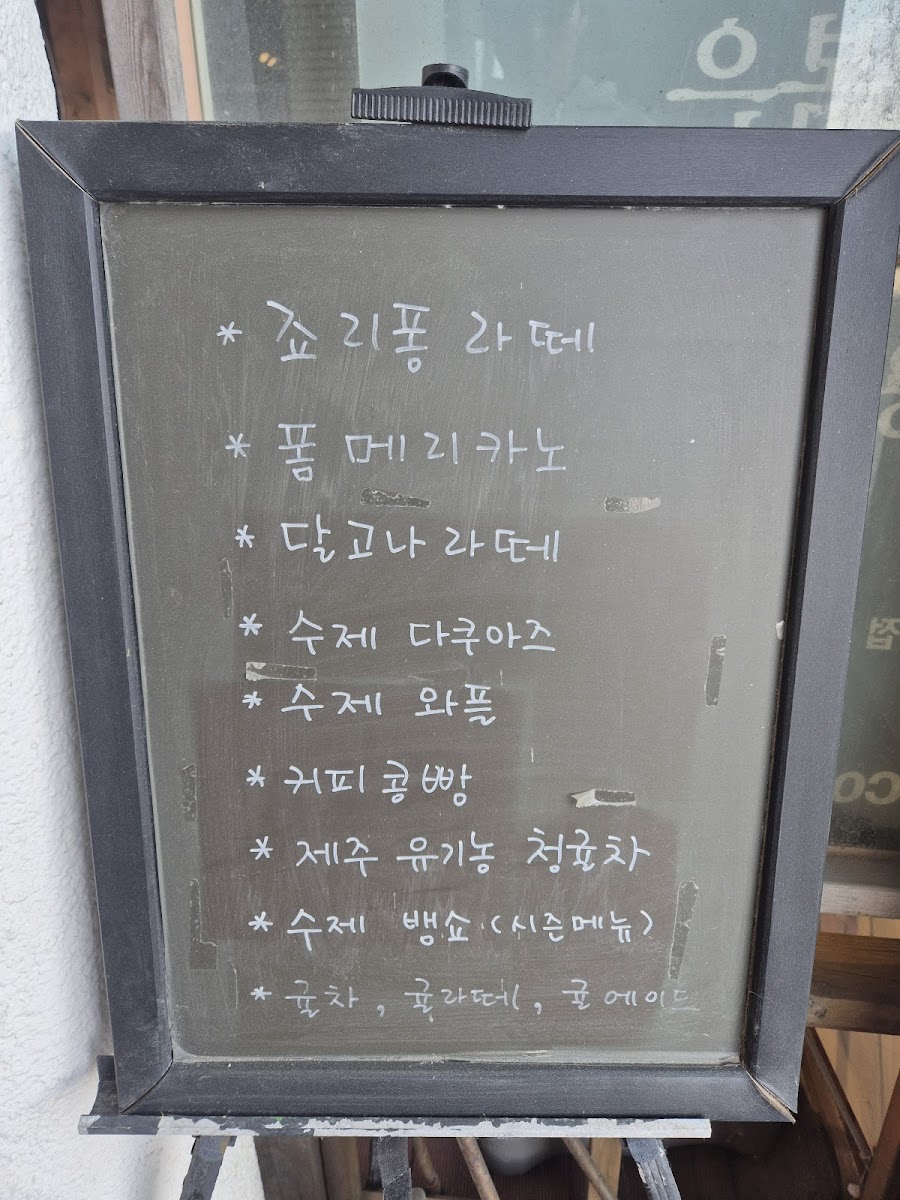 * 죠리퐁 라떼
* 폼메리카노
* 달고나라떼
* 수제 다쿠아즈
* 수제 와플
* 커피콩빵
* 제주 유기농 청귤차
* 수제 뱅쇼 (시즌메뉴)
* 귤차, 귤라떼, 귤에이드